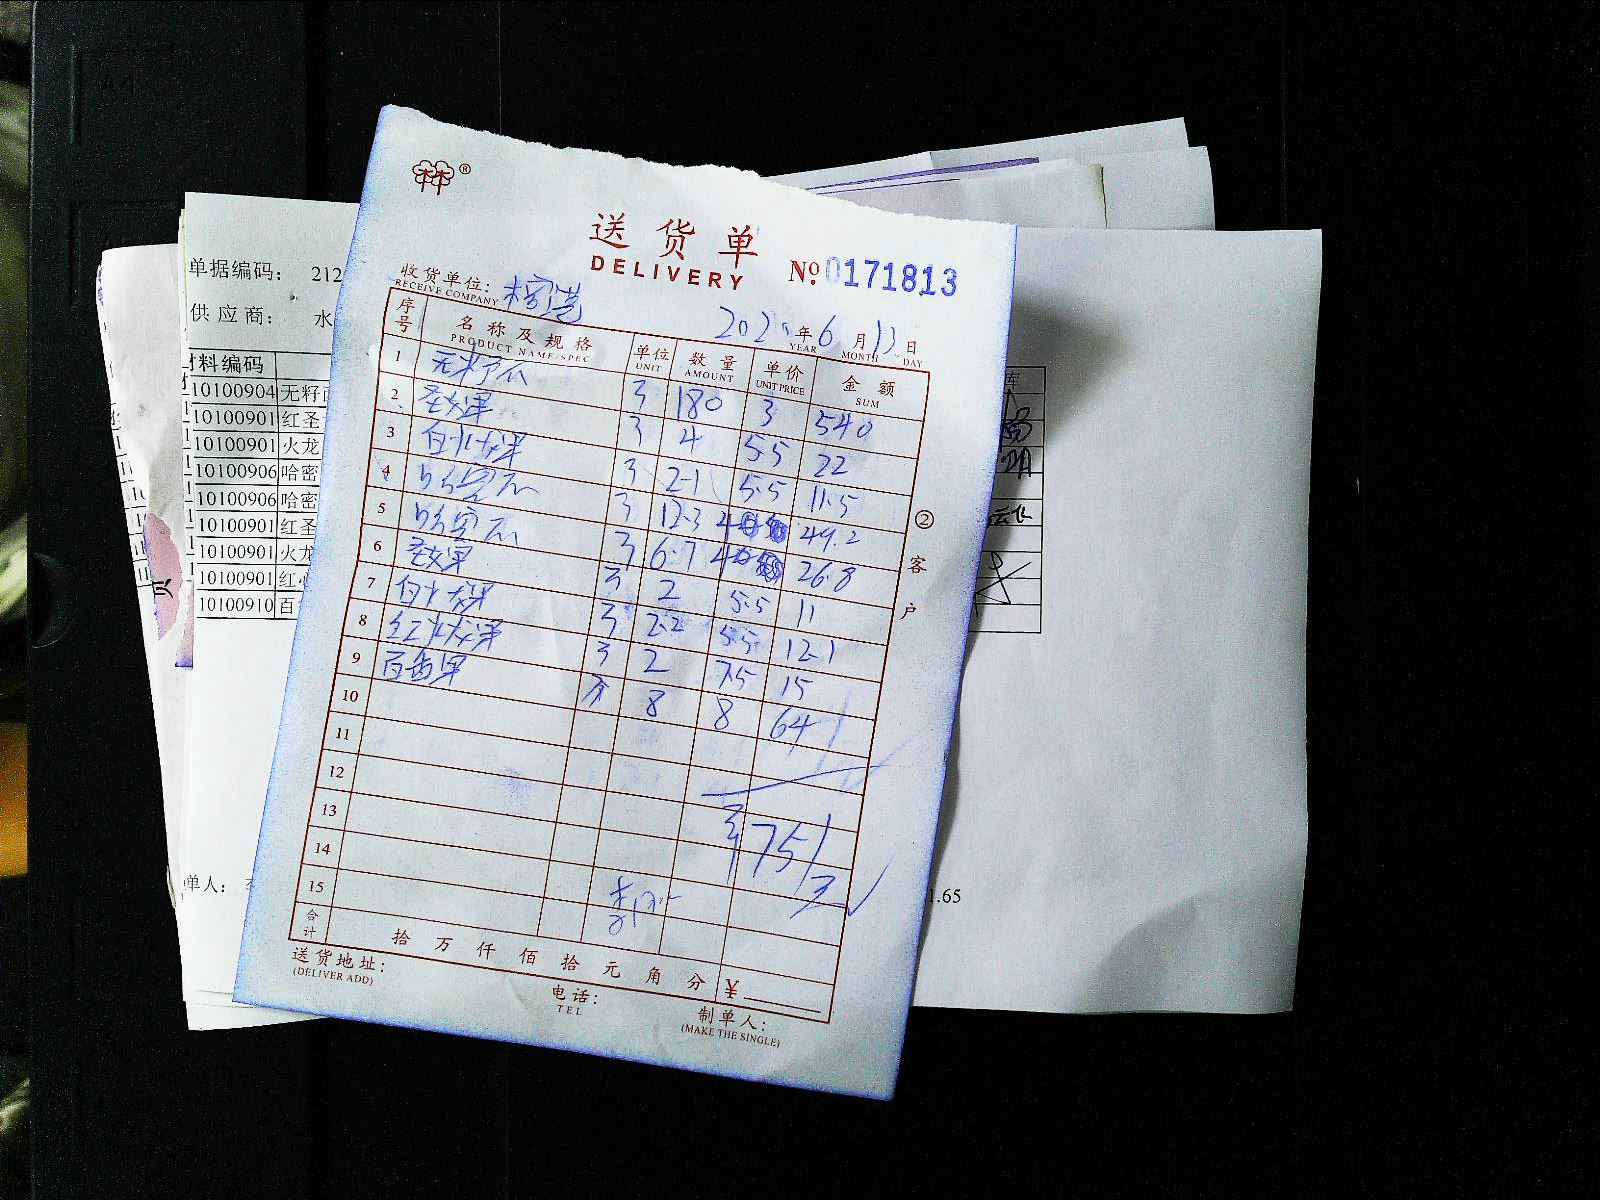 ®
送货单
DELIVERY
№ 0171813
收货单位:
RECEIVE COMPANY
年 6 月 13 日
YEAR MONTH DAY
序号 名称及规格 单位 数量 单价 金额
PRODUCT NAME/SPEC UNIT AMOUNT UNIT PRICE SUM
1 无籽瓜 180 3 540
2 圣女果 4 5.5 22
3 白火龙果 2.1 5.5 11.5
4 哈密瓜 12.3 4 49.2
5 哈密瓜 6.7 4 26.8
6 圣女果 2 5.5 11
7 白火龙果 2.2 5.5 12.1
8 红火龙果 2 7.5 15
9 百香果 8 8 64
10
11
12
13
14
15
¥751
合计 拾万仟佰拾元角分 ¥
送货地址:
(DELIVER ADD)
电话:
TEL
制单人:
(MAKE THE SINGLE)
②客户
单据编码: 212
供应商: 水
材料编码
10100904 无籽
10100901 红圣
10100901 火龙
10100906 哈密
10100906 哈密
10100901 红圣
10100901 火龙
10100901 红心
10100910 百
单人:
1.65
库